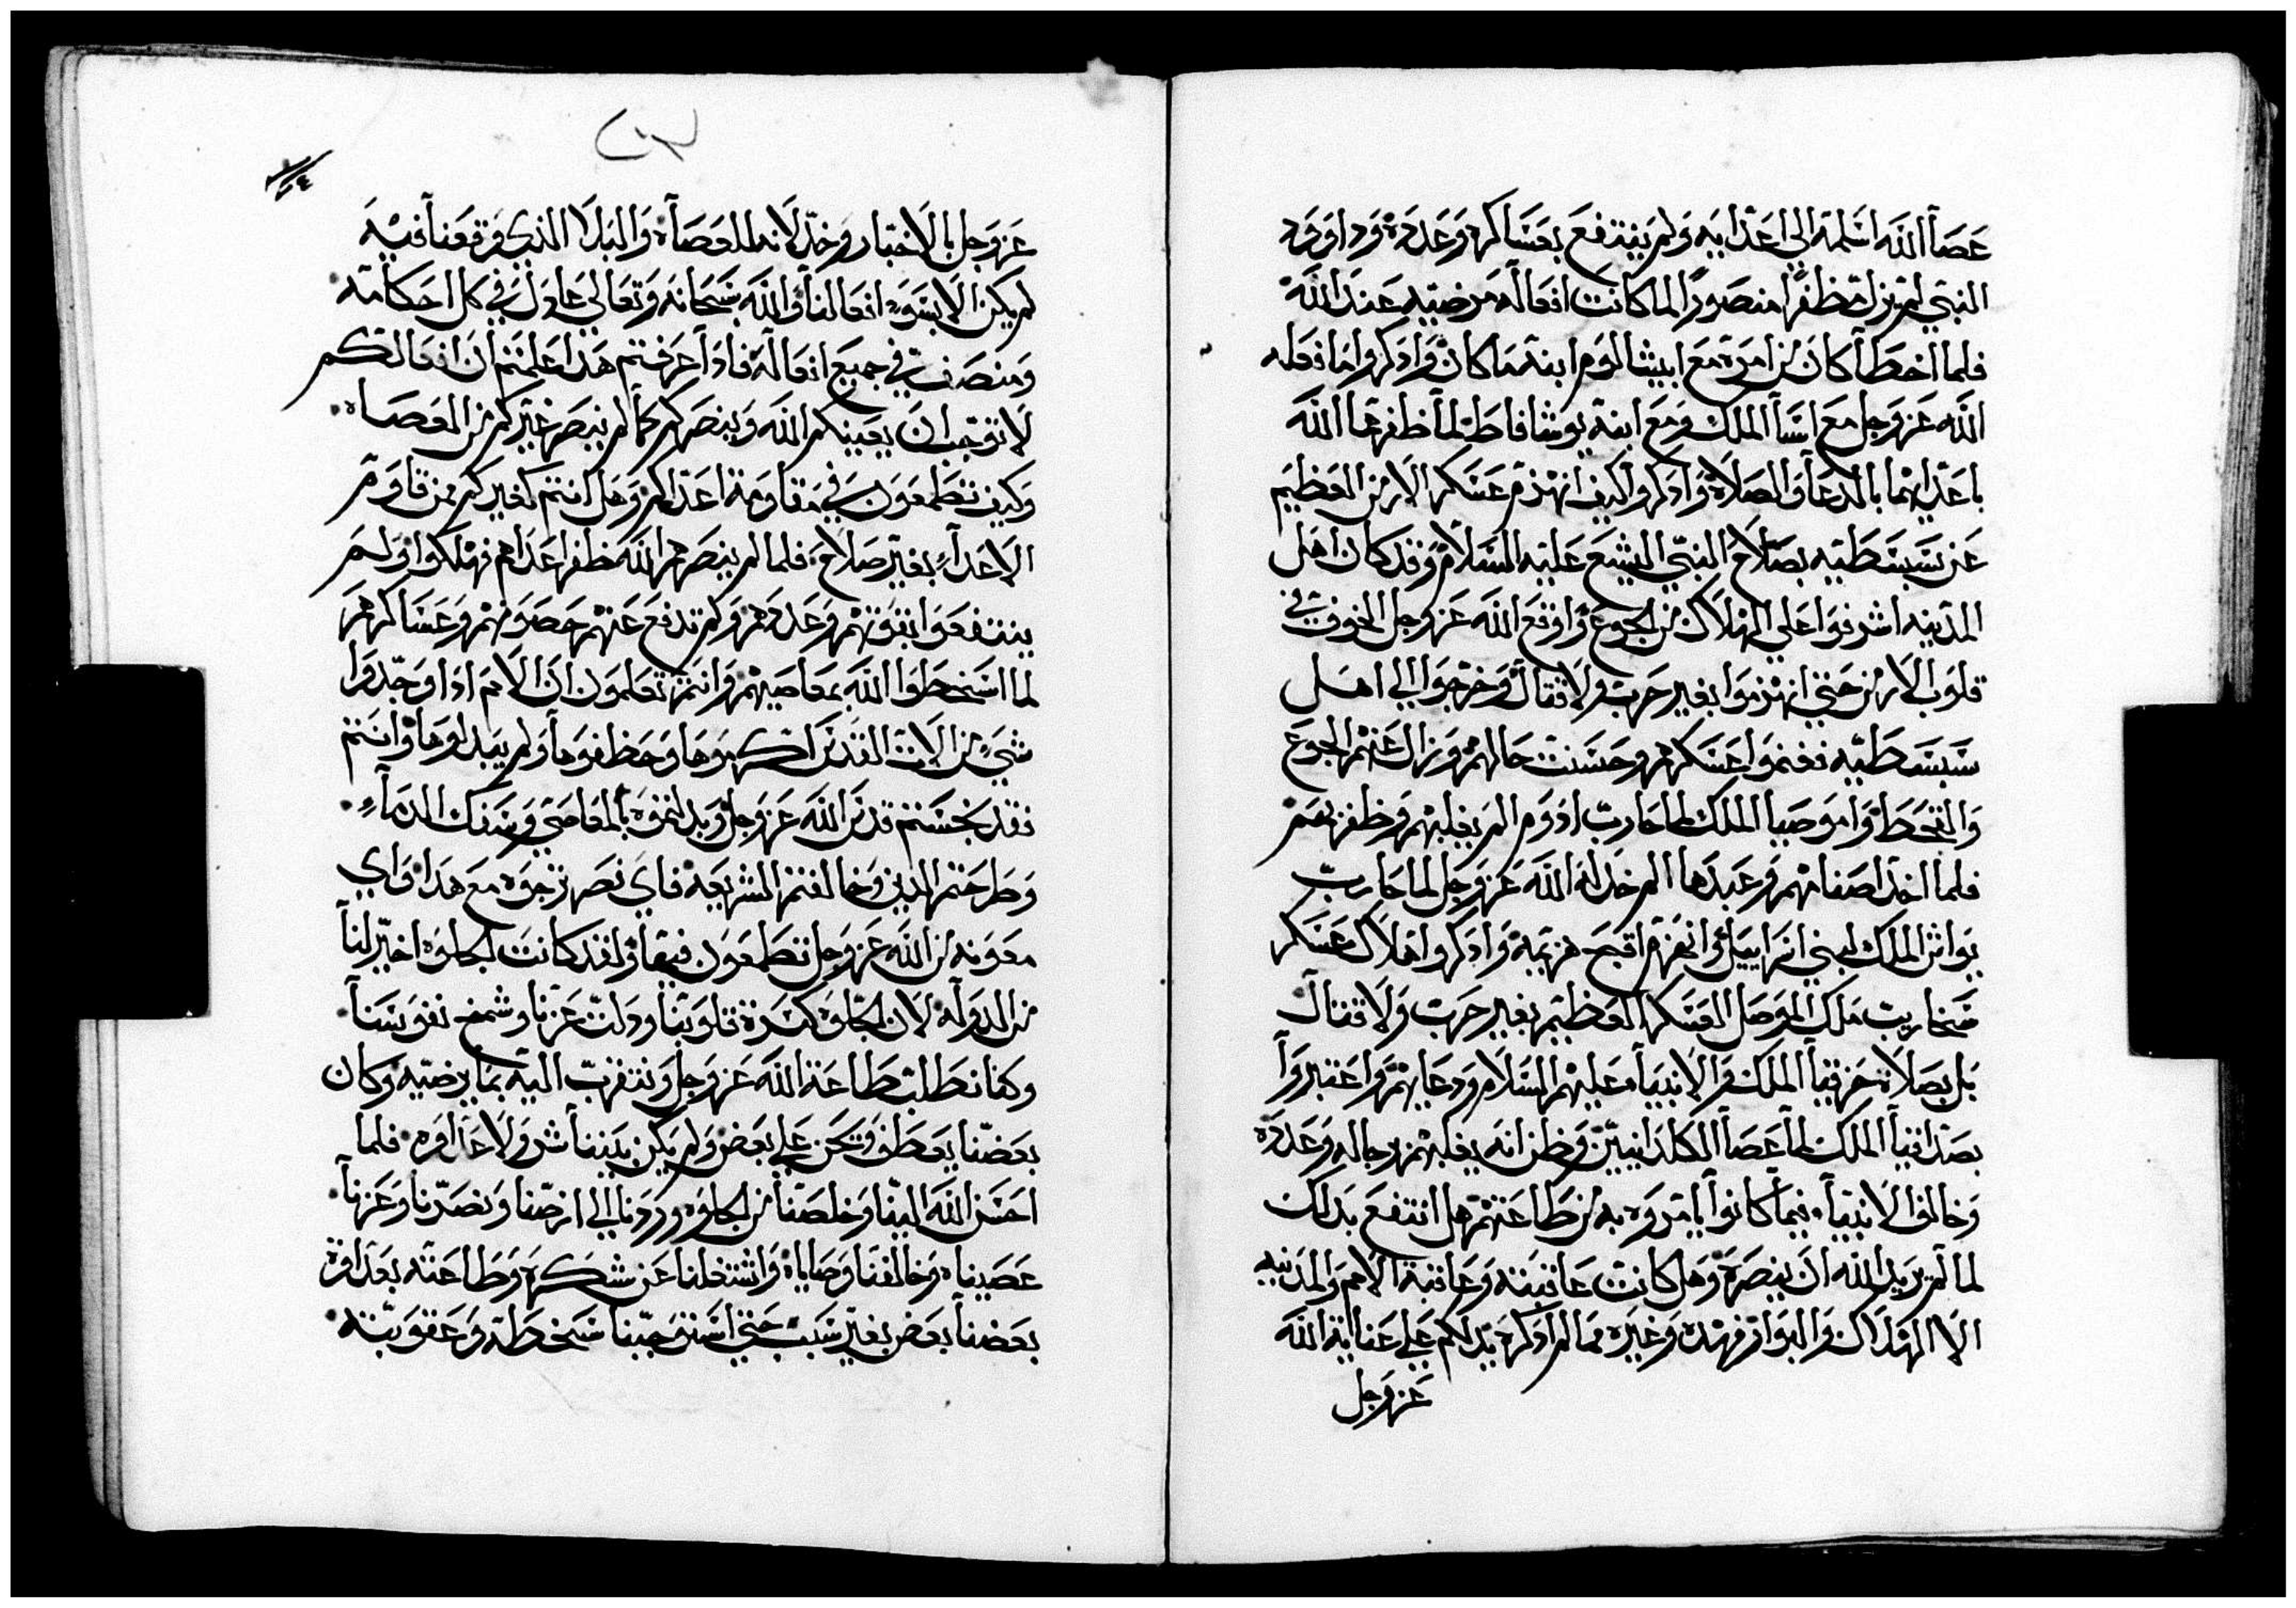 عصا الله اسلمه الي اعدايه ولم ينتفع بعساكره وعدده وداوود
النبي لم يزل مظفرا منصورا لما كانت افعاله مرضيه عند الله
فلما اخطا كان من امره مع ابيشالوم ابنه ما كان واذكروا ما فعله
الله عز وجل مع اسا الملك ومع ابنه يوشافاط لما ظفرهما الله
باعدايهما بالدعا والصلاه واذكروا كيف انهزم عسكر الارمن العظيم
عن سبسطيه بصلاح النبي اليشع عليه السلام وقد كان اهل
المدينه اشرفوا علي الهلاك من الجوع واوقع الله عز وجل الخوف في
قلوب الارمن حتي انهزموا بغير حرب ولا قتال وخرجوا الي اهل
سبسطيه فغنموا عسكرهم وحسنت حالهم وزال عنهم الجوع
والقحط واموصيا الملك لما حارب ادوم الم يغلبهم وظفر بهم
فلما اخذ اصنامهم وعبدها الم يخذله الله عز وجل لما حارب
يواش الملك لبني اسراييل وانهزم اقبح هزيمه واذكروا هلاك عسكر
سخاريب ملك الموصل العسكر العظيم بغير حرب ولا قتال
بل بصلاة حزقيا الملك والانبياء عليهم السلام ودعايهم واعتبروا
بصدقيا الملك لما عصا الكلدانيين وظن انه يغلبهم برجاله وعدده
وخالف الانبياء فيما كانوا يامروه به من طاعتهم هل انتفع بذلك
لما لم يريد الله ان ينصره وهل كانت عاقبته وعاقبة الامم والمدينه
الا الهلاك والبوار فهذه وغيره مما لم اذكره يدلكم علي عناية الله
عز وجل
عز وجل بالاخيار وخذلانه للعصاه والبلا الذي وقعنا فيه
لم يكن الا بسوء افعالنا والله سبحانه وتعالي عادل في كل احكامه
ومنصف في جميع افعاله فاذا عرفتم هذا علمتم ان افعالكم
لا توجب ان يعينكم الله وينصركم كما لم ينصر غيركم من العصاه
وكيف تطمعون في مقاومة اعداكم وهل انتم كغيركم ممن قاوم
الاعداء بغير صلاح فلما لم ينصرهم الله ظفر اعداهم فهلكوا ولم
ينتفعوا بقوتهم وعددهم ولم تدفع عنهم حصونهم وعساكرهم
لما اسخطوا الله بمعاصيهم وانتم تعلمون ان الامم اذا وجدوا
شي من الات القدس اكرموها وحفظوها ولم يبدلوها وانتم
فقد نجستم قدس الله عز وجل وبدلتموه بالمعاصي وسفك الدماء
وطرحتم الدين وخالفتم الشريعه فاي نصر ترجوه مع هذا واي
معونه من الله عز وجل تطمعون فيها ولقد كانت الجلوه اخير لنا
من الدوله لان الجلوه كسرة قلوبنا وذلت عزنا وشمخ نفوسنا
وكنا نطلب طاعة الله عز وجل ونتقرب اليه بما يرضيه وكان
بعضنا يعطف ويحن علي بعض ولم يكن بيننا شر ولا عداوه فلما
احسن الله الينا وخلصنا من الجلوه وردنا الي ارضنا ونصرنا وعزنا
عصيناه وخالفنا وصاياه واشتغلنا عن شكره وطاعته بعداوة
بعضنا بعض بغير سبب حتي استوجبنا سخطه وعقوبته